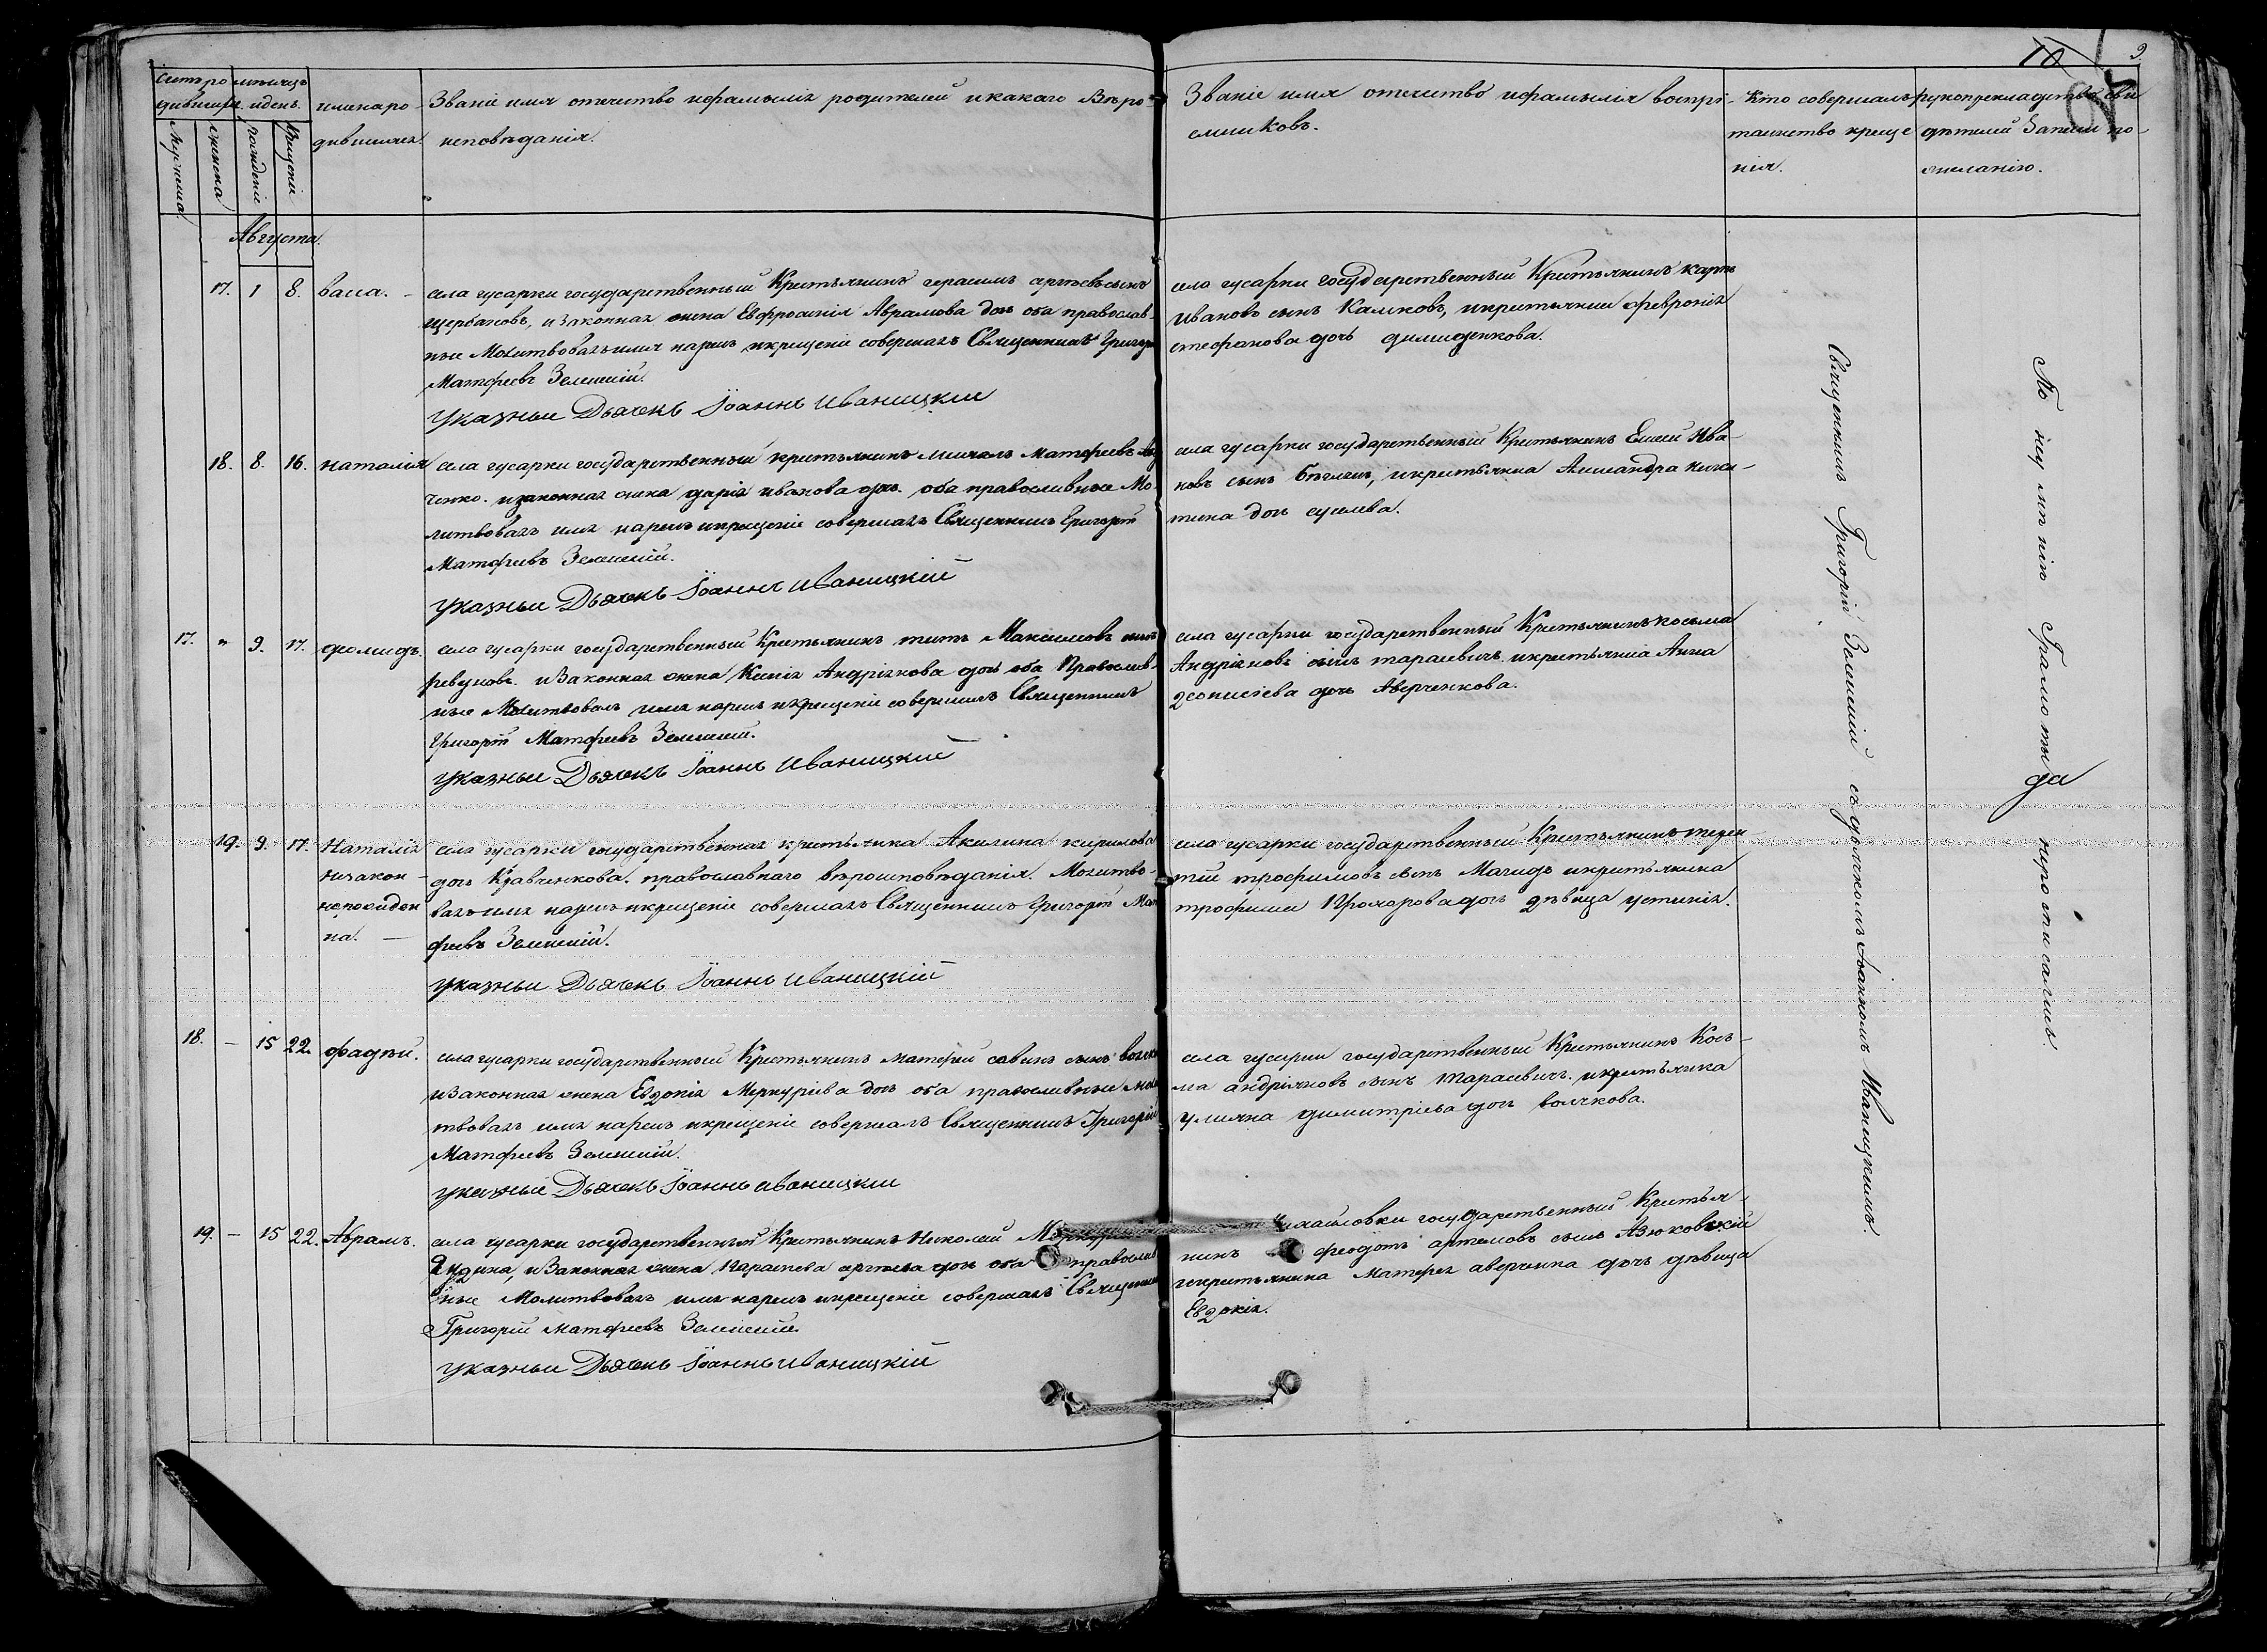 10
9
67
Счетъ ро
дившихся
мѣсяцъ
и день.
Мужеска
женска
рожденіе
Крещеніе
имена ро-
дившихся
Званіе имя отечество и фамылія родителей и какаго Вѣро-
исповѣданія.
Званіе имя отечество и фамылія воспрі-
емниковъ.
Кто совершалъ
таинство креще
нія.
рукоприкладство сви
дѣтелей Записи по-
желанію.
Августа
17. 1 8. васса.
села гусарки государственный Крестьянинъ герасимъ сергѣевъ сынъ
щербаковъ, и Законная жена Евфросинія Аврамова дочь оба православ-
ные Молитвовалъ имя нарекъ и крещеніе совершалъ Священникъ Григорій
Матфеевъ Зеленскій.
Указный Дьячекъ Іоаннъ Иваницкій
села гусарки государственный Крестьянинъ карпъ
Ивановъ сынъ Калиновъ, и крестьянки февронія
стефанова дочь
18. 8. 16. наталія
села гусарки государственный крестьянинъ Матфеевъ
ченко. и законная жена дарія иванова дочь оба православные Мо-
литвовалъ имя нарекъ и крещеніе совершалъ Священникъ Григорій
Матфеевъ Зеленскій.
Указный Дьячекъ Іоаннъ Иваницкій
села гусарки государственный Крестьянинъ Ива-
новъ сынъ и крестьянка Александра ники-
тина дочь
17. " 9. 17. фомидъ.
села гусарки государственный Крестьянинъ титъ Максимовъ сынъ
ревуновъ. и Законная жена Ксенія Андріянова дочь оба Православ-
ные Молитвовалъ имя нарекъ и крещеніе совершилъ Священникъ
Григорій Матфеевъ Зеленскій.
Указный Дьячекъ Іоаннъ Иваницкій
села гусарки государственный Крестьянинъ косьма
Андріяновъ сынъ тарасевичъ. и крестьянка Анна
деонисіева дочь Аверченкова.
19. 9. 17. Наталія
незакон-
норожден
на.
села гусарки государственная крестьянка Акилина кирилова
дочь Кравченкова. православнаго вѣроисповѣданія. Молитво-
валъ имя нарекъ и крещеніе совершалъ Священникъ Григорій Мат
феевъ Зеленскій.
Указный Дьячекъ Іоаннъ Иваницкій
села гусарки государственный Крестьянинъ терен-
тій трофимовъ сынъ и крестьянина
трофима дочь дѣвица устинія.
18. — 15 22. фадѣй.
села гусарки государственный Крестьянинъ матфей савинъ сынъ
и Законная жена Евдокія Меркуріева дочь оба православные Моли
твовалъ имя нарекъ и крещеніе совершалъ Священникъ Григорій
Матфеевъ Зеленскій.
Указный Дьячекъ Іоаннъ Иваницкій
села гусарки государственный Крестьянинъ Кось-
ма андріяновъ сынъ тарасевичъ. и крестьянка
улияна димитріева дочь волчкова.
19. — 15 22. Абрамъ.
села гусарки государственный Крестьянинъ Николай
и Законная жена сергѣева дочь оба православ
ные Молитвовалъ имя нарекъ и крещеніе совершалъ Священникъ
Григорій Матфеевъ Зеленскій
Указный Дьячекъ Іоаннъ Иваницкій
государственный Крестья-
нинъ феодотъ артемовъ сынъ Азюковскій
и крестьянина Матфея аверченка дочь дѣвица
Евдокія.
Священникъ Григорій Зеленскій съ дьячкомъ Іоанномъ Иваницкимъ.
По неумѣнію Грамоты
да
неросписались.